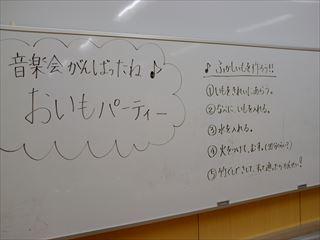 音楽会がんばったね♪
おいもパーティー
♪ ふかしいもを作ろう!!
①いもをきれいにあらう。
②なべに、いもを入れる。
③水を入れる。
④火をつけて、むす。
⑤竹ぐしでさして、